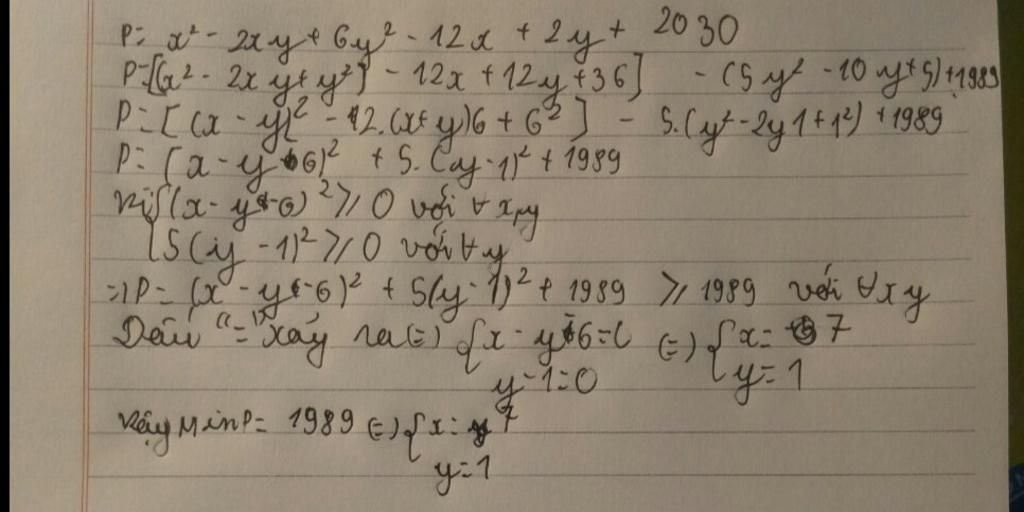 P = x² - 2xy + 6y² - 12x + 2y + 2030
P=[(x² - 2xy + y²) - 12x + 12y + 36] - (5y² - 10y + 5) + 1989
P = [(x - y)² - 2.(x+y)6 + 6²] - 5.(y² - 2y1 + 1²) + 1989
P = (x - y - 6)² + 5.(y - 1)² + 1989
Vì {(x - y - 6)² ≥ 0 với ∀ x, y
{5(y - 1)² ≥ 0 với ∀ y
=> P = (x - y - 6)² + 5(y - 1)² + 1989 ≥ 1989 với ∀ x y
Dấu "=" xảy ra (=) {x - y - 6 = 0 (=) {x = 7
y - 1 = 0 y = 1
Vậy Min P = 1989 (=) {x = 7
y = 1